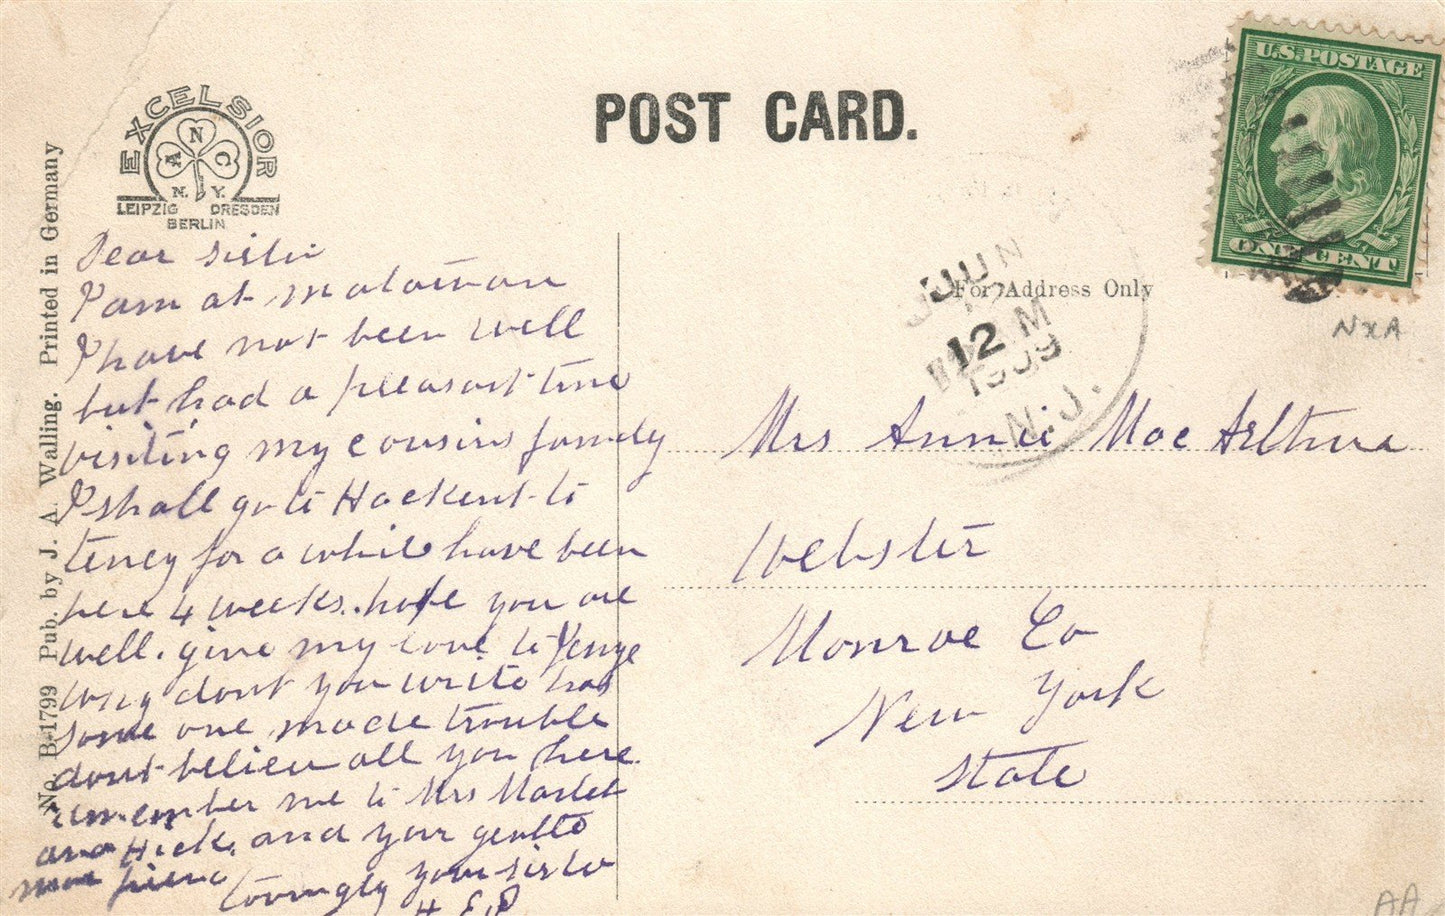 POST CARD.
EXCELSIOR
A N C
N. Y.
LEIPZIG DRESDEN
BERLIN
No. B-1799 Pub. by J. A. Walling. Printed in Germany
U.S. POSTAGE
ONE CENT
JUN
12 M
1909
N.J.
For Address Only
NxA
Dear sister
I am at
I have not been well
but had a pleasant time
visiting my cousins family
I shall go to Hackent to
for a while have been
here 4 weeks. hope you are
well. give my love to
why dont you write has
some one made trouble
dont believe all you here
remember me to Mrs
and Hick. and your gentle
man friend
Lovingly your sister
H. E. P.
Mrs Annie Mac Arthur
Webster
Monroe Co
New York
State
AA